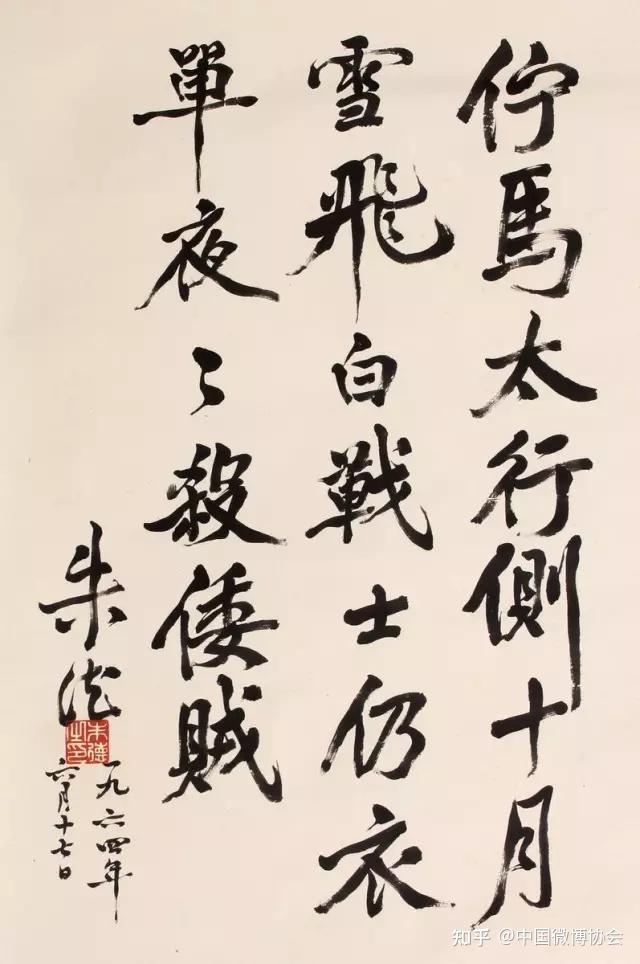 佇馬太行側十月
雪飛白戰士仍衣
單夜〻殺倭賊
朱德
朱德之印
一九六四年
六月十七日
知乎 @中国微博协会